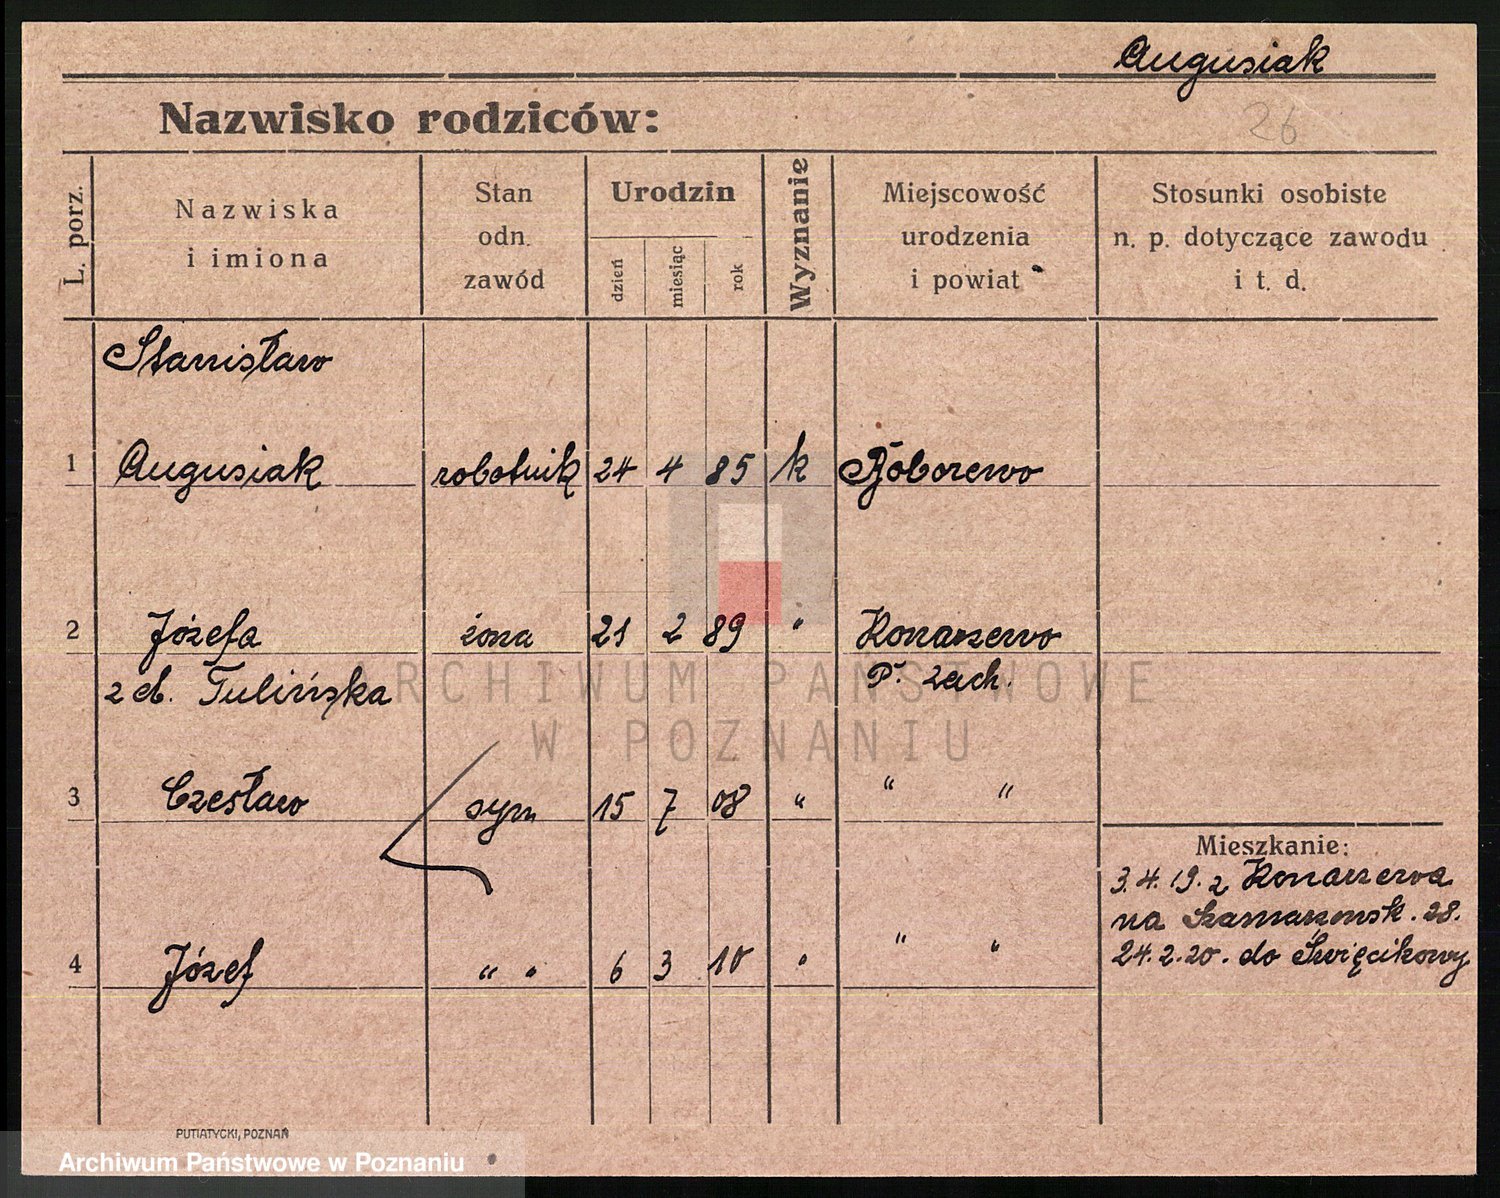 Augusiak
Nazwisko rodziców:
26
L. porz.
Nazwiska i imiona
Stan odn. zawód
Urodzin
dzień miesiąc rok
Wyznanie
Miejscowość urodzenia i powiat
Stosunki osobiste n. p. dotyczące zawodu i t. d.
Stanisław
1 Augusiak robotnik 24 4 85 k
2 Józefa żona 21 2 89 " Konarzewo
z d. Tulińska P. Zach.
3 Czesław syn 15 7 08 " " "
Mieszkanie:
3.4.19. z Konarzewa
na 28.
4 Józef " " 6 3 10 " " "
24.2.20. do Święcikowy
PUTIATYCKI, POZNAŃ
ARCHIWUM PAŃSTWOWE
W POZNANIU
Archiwum Państwowe w Poznaniu